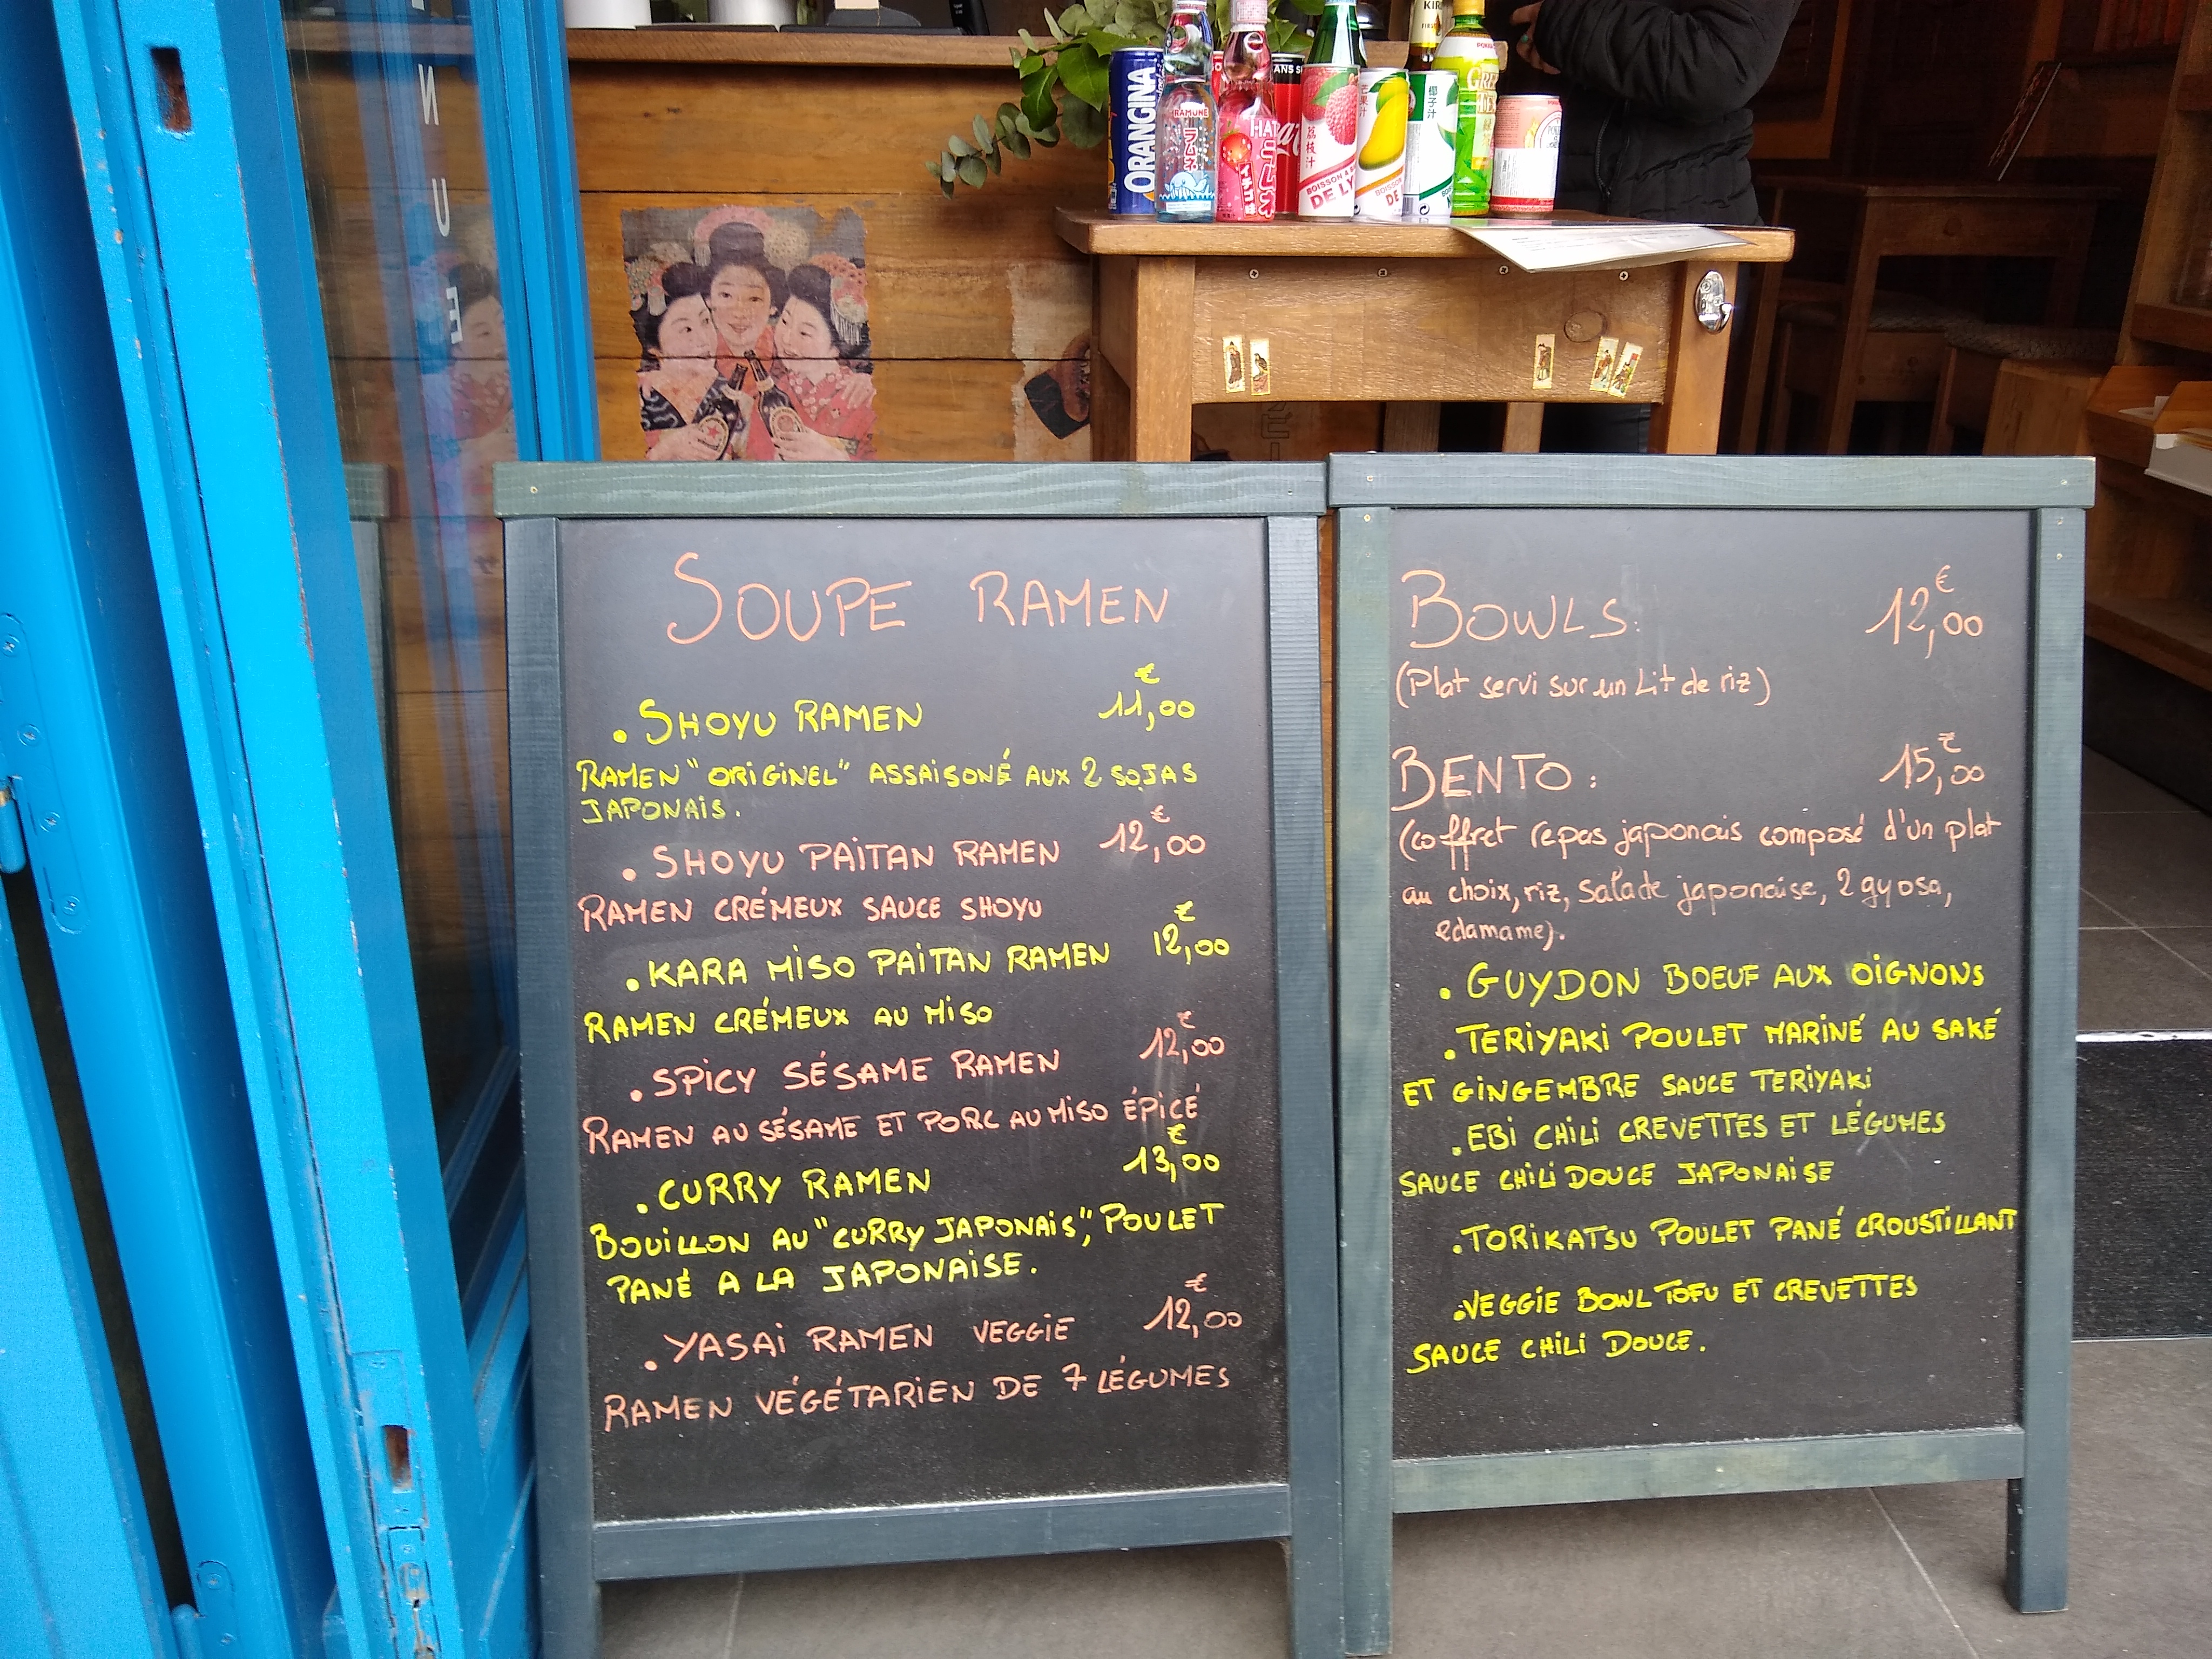 ORANGINA
RAMUNE
ラムネ
HATA
ラムネ
イチゴ味
SANS S
荔枝汁
BOISSON A
DE LY
芒果汁
BOISSON
DE
椰子汁
KIRI
POKKA
GREEN
SOUPE RAMEN
. SHOYU RAMEN 11,00 €
RAMEN "ORIGINEL" ASSAISONÉ AUX 2 SOJAS
JAPONAIS.
. SHOYU PAITAN RAMEN 12,00 €
RAMEN CRÉMEUX SAUCE SHOYU
. KARA MISO PAITAN RAMEN 12,00 €
RAMEN CRÉMEUX AU MISO
. SPICY SÉSAME RAMEN 12,00 €
RAMEN AU SÉSAME ET PORC AU MISO ÉPICÉ
. CURRY RAMEN 13,00 €
BOUILLON AU "CURRY JAPONAIS", POULET
PANÉ A LA JAPONAISE.
. YASAI RAMEN VEGGIE 12,00 €
RAMEN VÉGÉTARIEN DE 7 LÉGUMES
BOWLS: 12,00 €
(Plat servi sur un Lit de riz)
BENTO : 15,00 €
(coffret repas japonais composé d'un plat
au choix, riz, salade japonaise, 2 gyosa,
edamame).
. GUYDON BOEUF AUX OIGNONS
. TERIYAKI POULET MARINÉ AU SAKÉ
ET GINGEMBRE SAUCE TERIYAKI
. EBI CHILI CREVETTES ET LÉGUMES
SAUCE CHILI DOUCE JAPONAISE
. TORIKATSU POULET PANÉ CROUSTILLANT
. VEGGIE BOWL TOFU ET CREVETTES
SAUCE CHILI DOUCE.